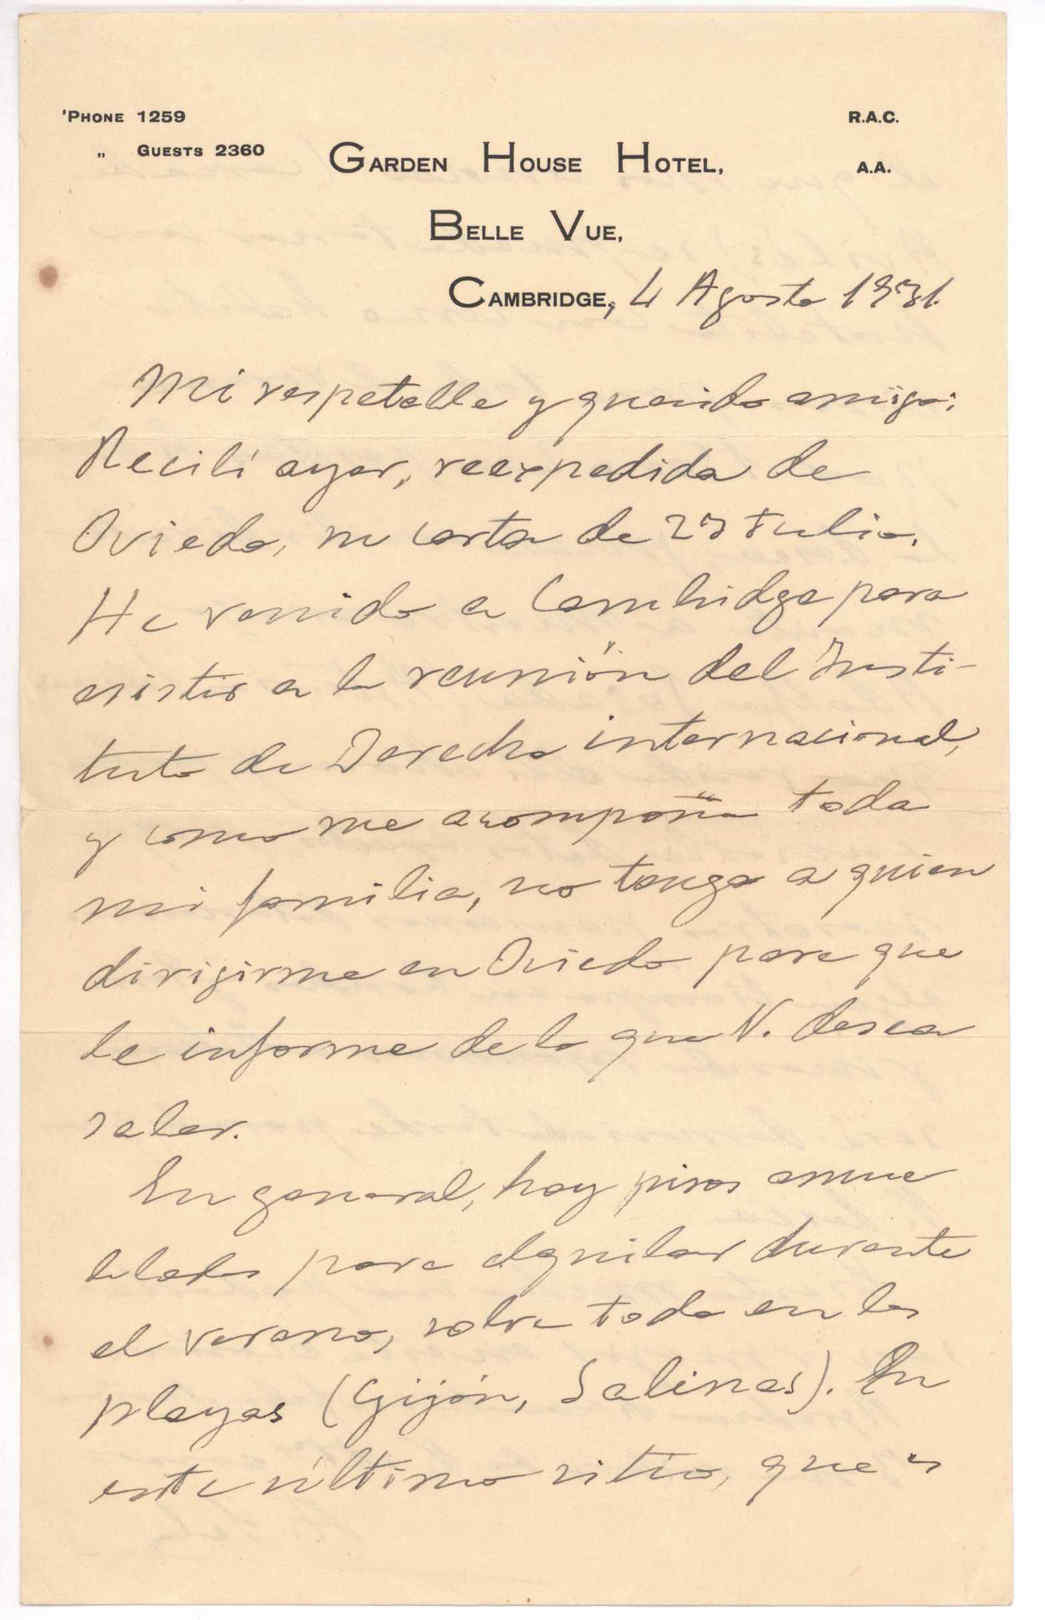 'Phone 1259
" Guests 2360
R.A.C.
A.A.
Garden House Hotel,
Belle Vue,
Cambridge, 4 Agosto 1931.
Mi respetable y querido amigo:
Recibí ayer, reexpedida de
Oviedo, su carta de 27 Julio.
He venido a Cambridge para
asistir a la reunión del Insti-
tuto de Derecho internacional,
y como me acompaña toda
mi familia, no tengo a quien
dirigirme en Oviedo para que
le informe de lo que V. desea
saber.
En general, hay pisos amue
blados para alquilar durante
el verano, sobre todo en las
playas (Gijón, Salinas). En
este último sitio, que es